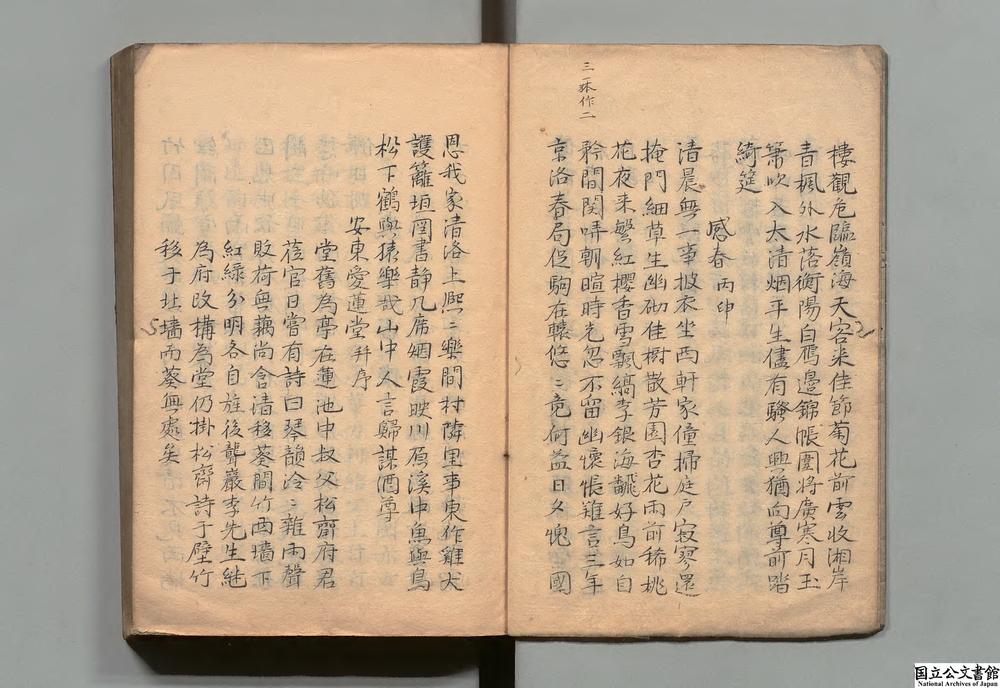 三一本作二
樓觀危臨嶺海天客来佳節菊花前雲收湘岸
青楓外水落衡陽白鴈邊錦帳圍將廣寒月玉
簫吹入太清烟平生儘有騷人興猶向尊前踏
綺筵
感春 丙申
清晨無一事披衣坐西軒家僮掃庭户寂寥還
掩門細草生幽砌佳樹散芳園杏花雨前稀桃
花夜来繁紅櫻香雪飄縞李銀海飜好鳥如自
矜間関哢朝暄時光忽不留幽懷悵難言三年
京洛春局促駒在轅悠〻竟何益日夕愧國
恩我家清洛上熈〻樂間村隣里事東作雞犬
護籬垣圖書静几席烟霞映川原溪中魚與鳥
松下鶴與猿樂哉山中人言歸謀酒尊
安東愛蓮堂并序
堂舊為亭在蓮池中叔父松齋府君
莅官日嘗有詩曰琴韻冷〻雜雨聲
敗荷無藕尚含清移葵間竹西墻下
紅緑分明各自旌後聾巖李先生継
為府改構為堂仍掛松齊詩于壁竹
移于北墻而葵無處矣
国立公文書館
National Archives of Japan